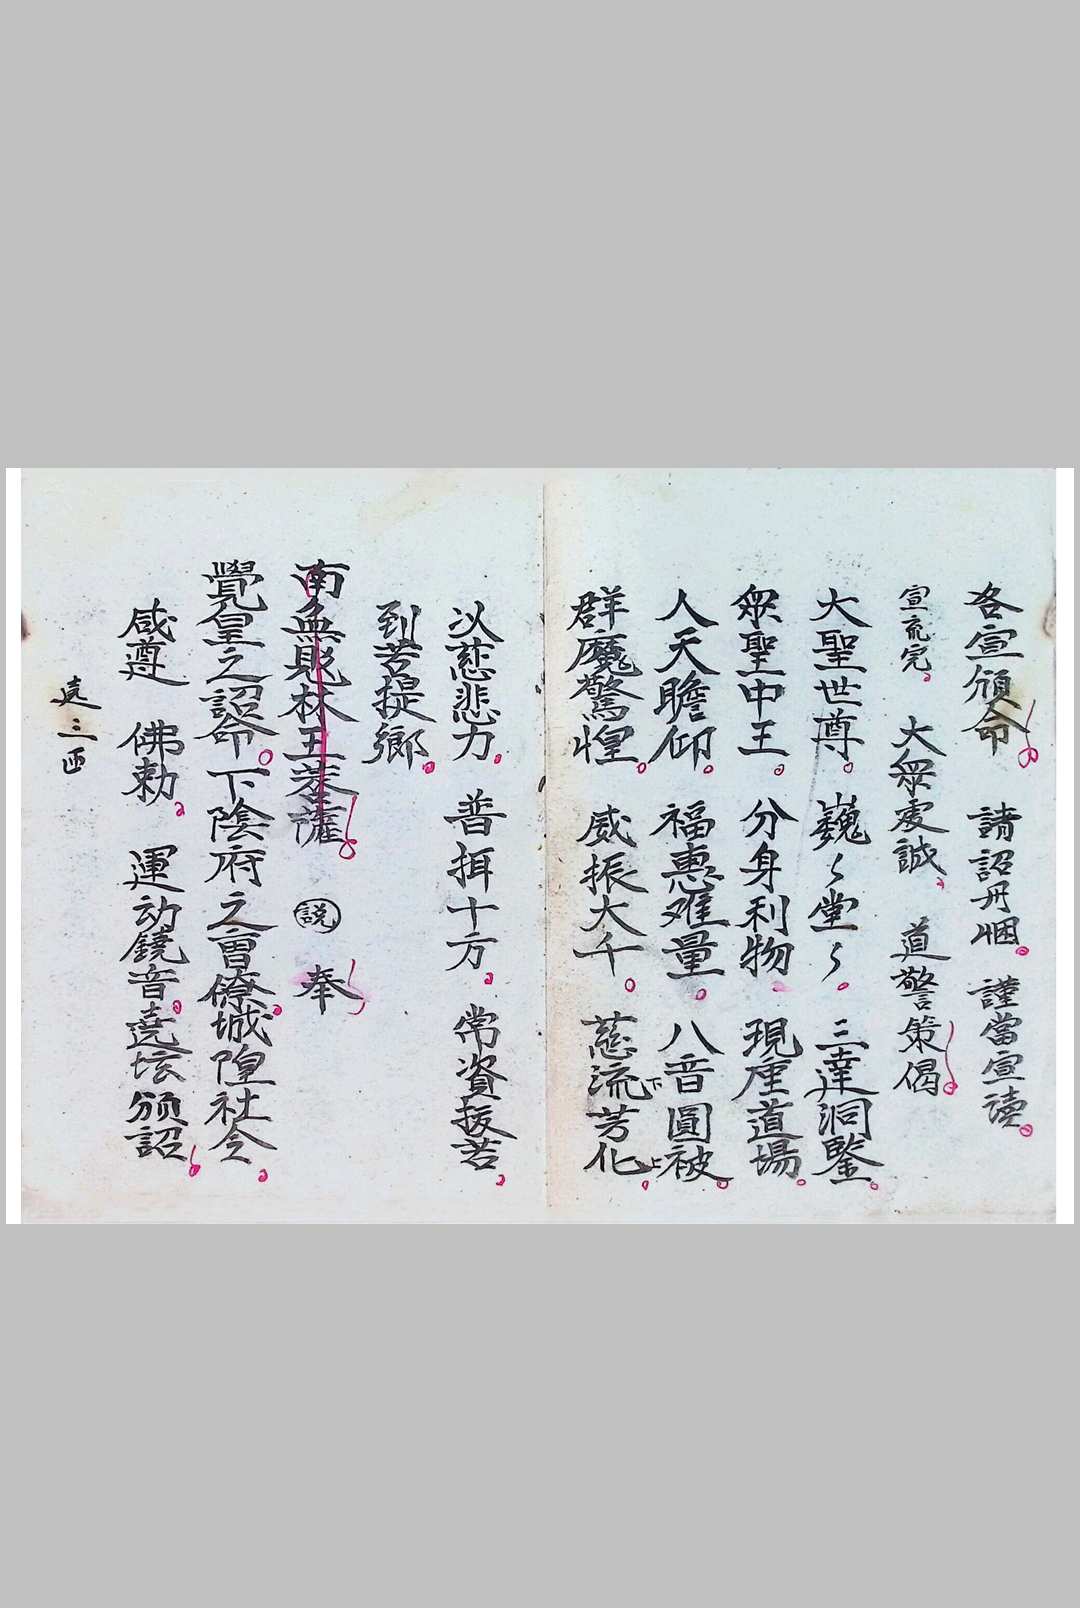 各宣頒命 請詔丹悃 謹當宣讀
宣疏完 大眾虔誠 道警策偈
大聖世尊 巍々堂々 三達洞鑒
眾聖中王 分身利物 現厘道場
人天瞻仰 福惠难量 八音圓被
群魔驚惶 威振大千 慈流芳化
下
上
以慈悲力 普拑十方 常資拔苦
到菩提鄉
南無毘林王菩薩 説 奉
覺皇之詔命 下陰府之曹僚城隍社令
咸尊 佛勅 運动鐃音遶坛颁詔
遶三匝